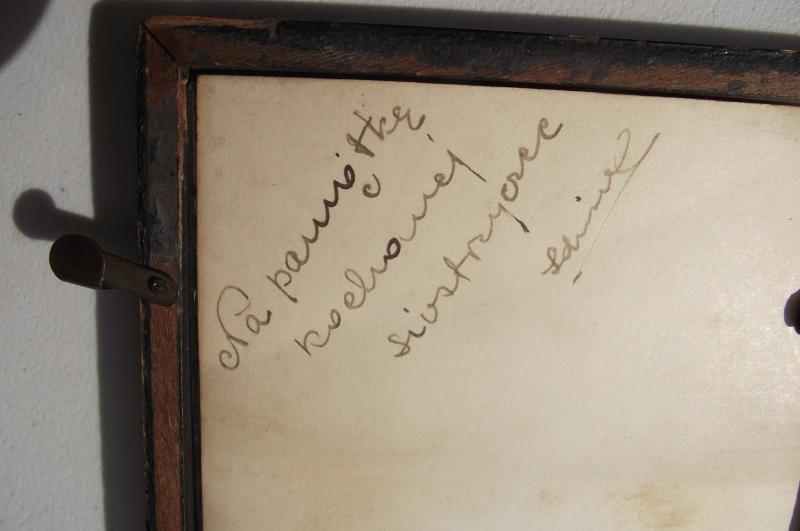 Na pamiątkę
kochanej
siostrzyczce